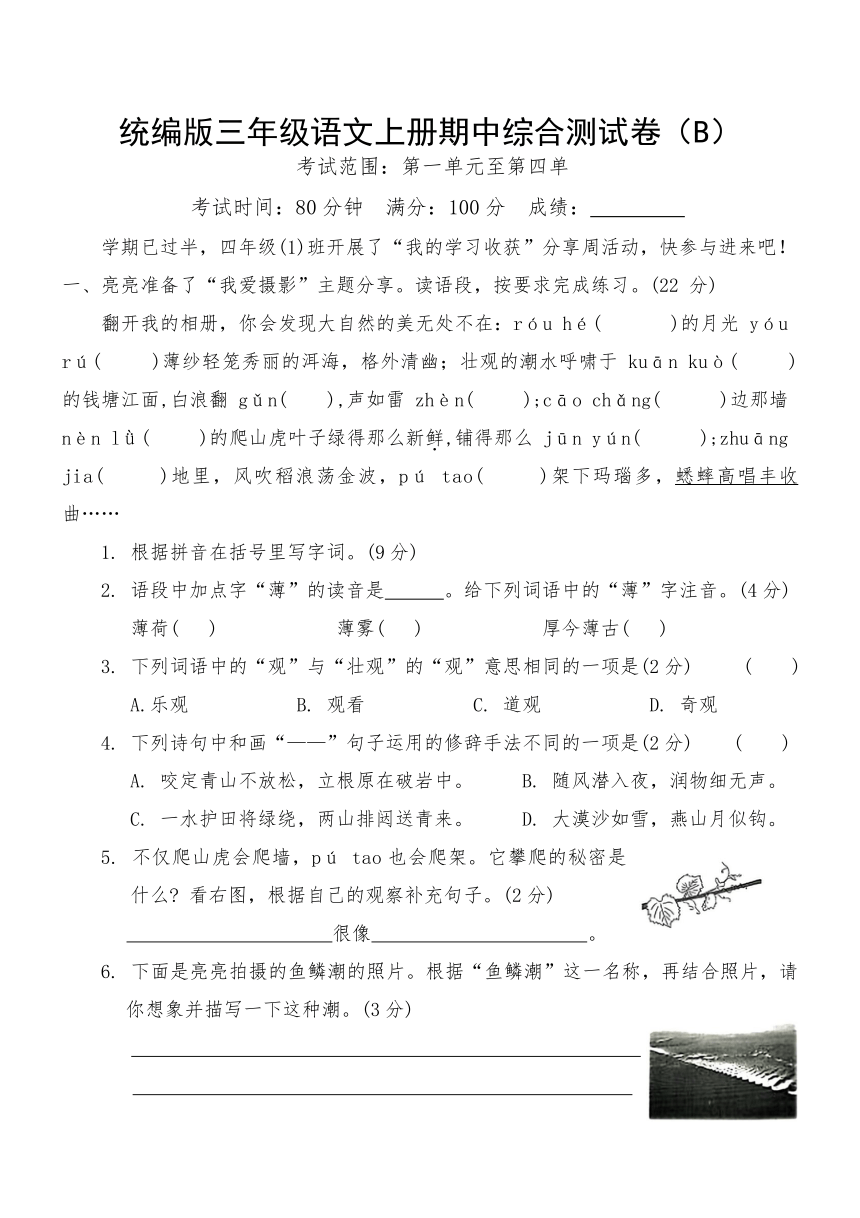 统编版三年级语文上册期中综合测试卷（B）
考试范围：第一单元至第四单
考试时间：80分钟 满分：100分 成绩：
学期已过半，四年级(1)班开展了“我的学习收获”分享周活动，快参与进来吧！
一、亮亮准备了“我爱摄影”主题分享。读语段，按要求完成练习。(22 分)
翻开我的相册，你会发现大自然的美无处不在：róu hé( )的月光 yóu
rú( )薄纱轻笼秀丽的洱海，格外清幽；壮观的潮水呼啸于 kuān kuò( )
的钱塘江面,白浪翻 gǔn( ),声如雷 zhèn( );cāo chǎng( )边那墙
nèn lǜ( )的爬山虎叶子绿得那么新鲜,铺得那么 jūn yún( );zhuāng
jia( )地里，风吹稻浪荡金波，pú tao( )架下玛瑙多，蟋蟀高唱丰收
曲……
1. 根据拼音在括号里写字词。(9分)
2. 语段中加点字“薄”的读音是 。给下列词语中的“薄”字注音。(4分)
薄荷( ) 薄雾( ) 厚今薄古( )
3. 下列词语中的“观”与“壮观”的“观”意思相同的一项是(2分) ( )
A.乐观 B. 观看 C. 道观 D. 奇观
4. 下列诗句中和画“——”句子运用的修辞手法不同的一项是(2分) ( )
A. 咬定青山不放松，立根原在破岩中。 B. 随风潜入夜，润物细无声。
C. 一水护田将绿绕，两山排闼送青来。 D. 大漠沙如雪，燕山月似钩。
5. 不仅爬山虎会爬墙，pú tao也会爬架。它攀爬的秘密是
什么? 看右图，根据自己的观察补充句子。(2分)
很像 。
6. 下面是亮亮拍摄的鱼鳞潮的照片。根据“鱼鳞潮”这一名称，再结合照片，请
你想象并描写一下这种潮。(3分)